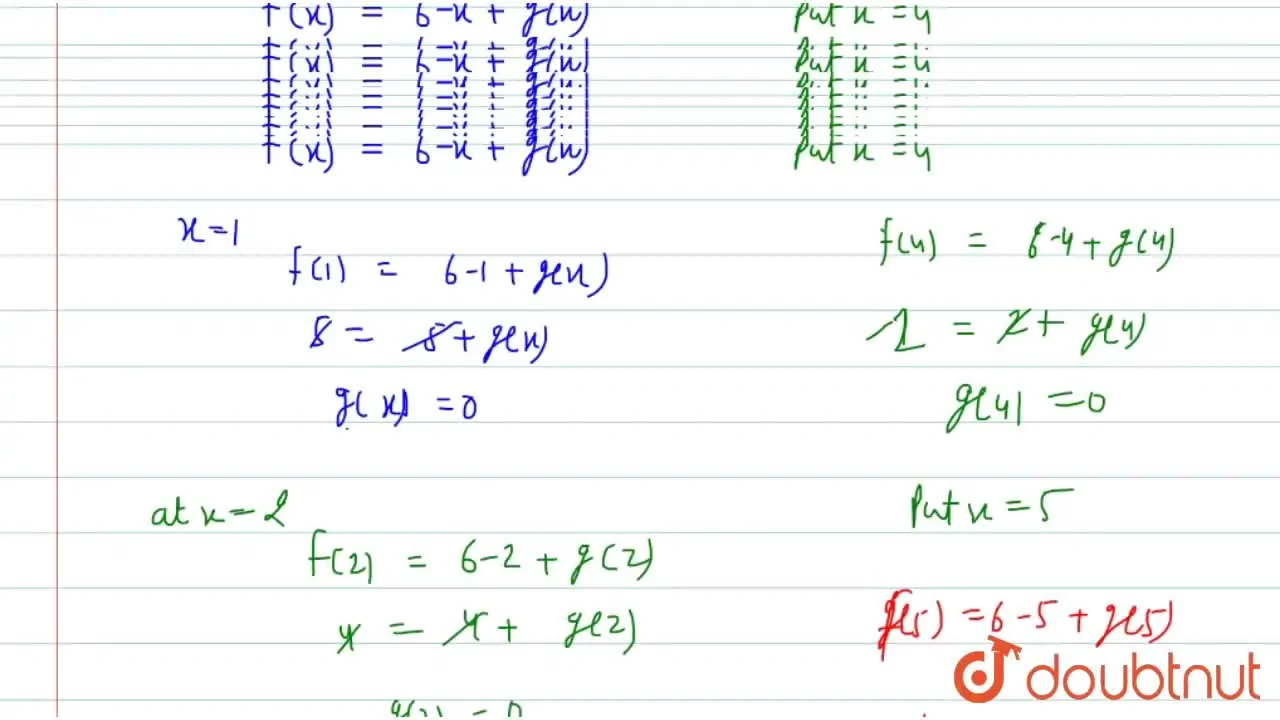 f(x) = 6-x + g(x)
f(x) = 6-x + g(x)
f(x) = 6-x + g(x)
x=1
f(1) = 6-1 + g(x)
5 = 5 + g(x)
g(x) = 0
at x = 2
f(2) = 6-2 + g(2)
4 = 4 + g(2)
g(2) = 0
Put x = 4
Put x = 4
Put x = 4
f(4) = 6-4 + g(4)
2 = 2 + g(4)
g(4) = 0
Put x = 5
f(5) = 6-5 + g(5)
doubtnut